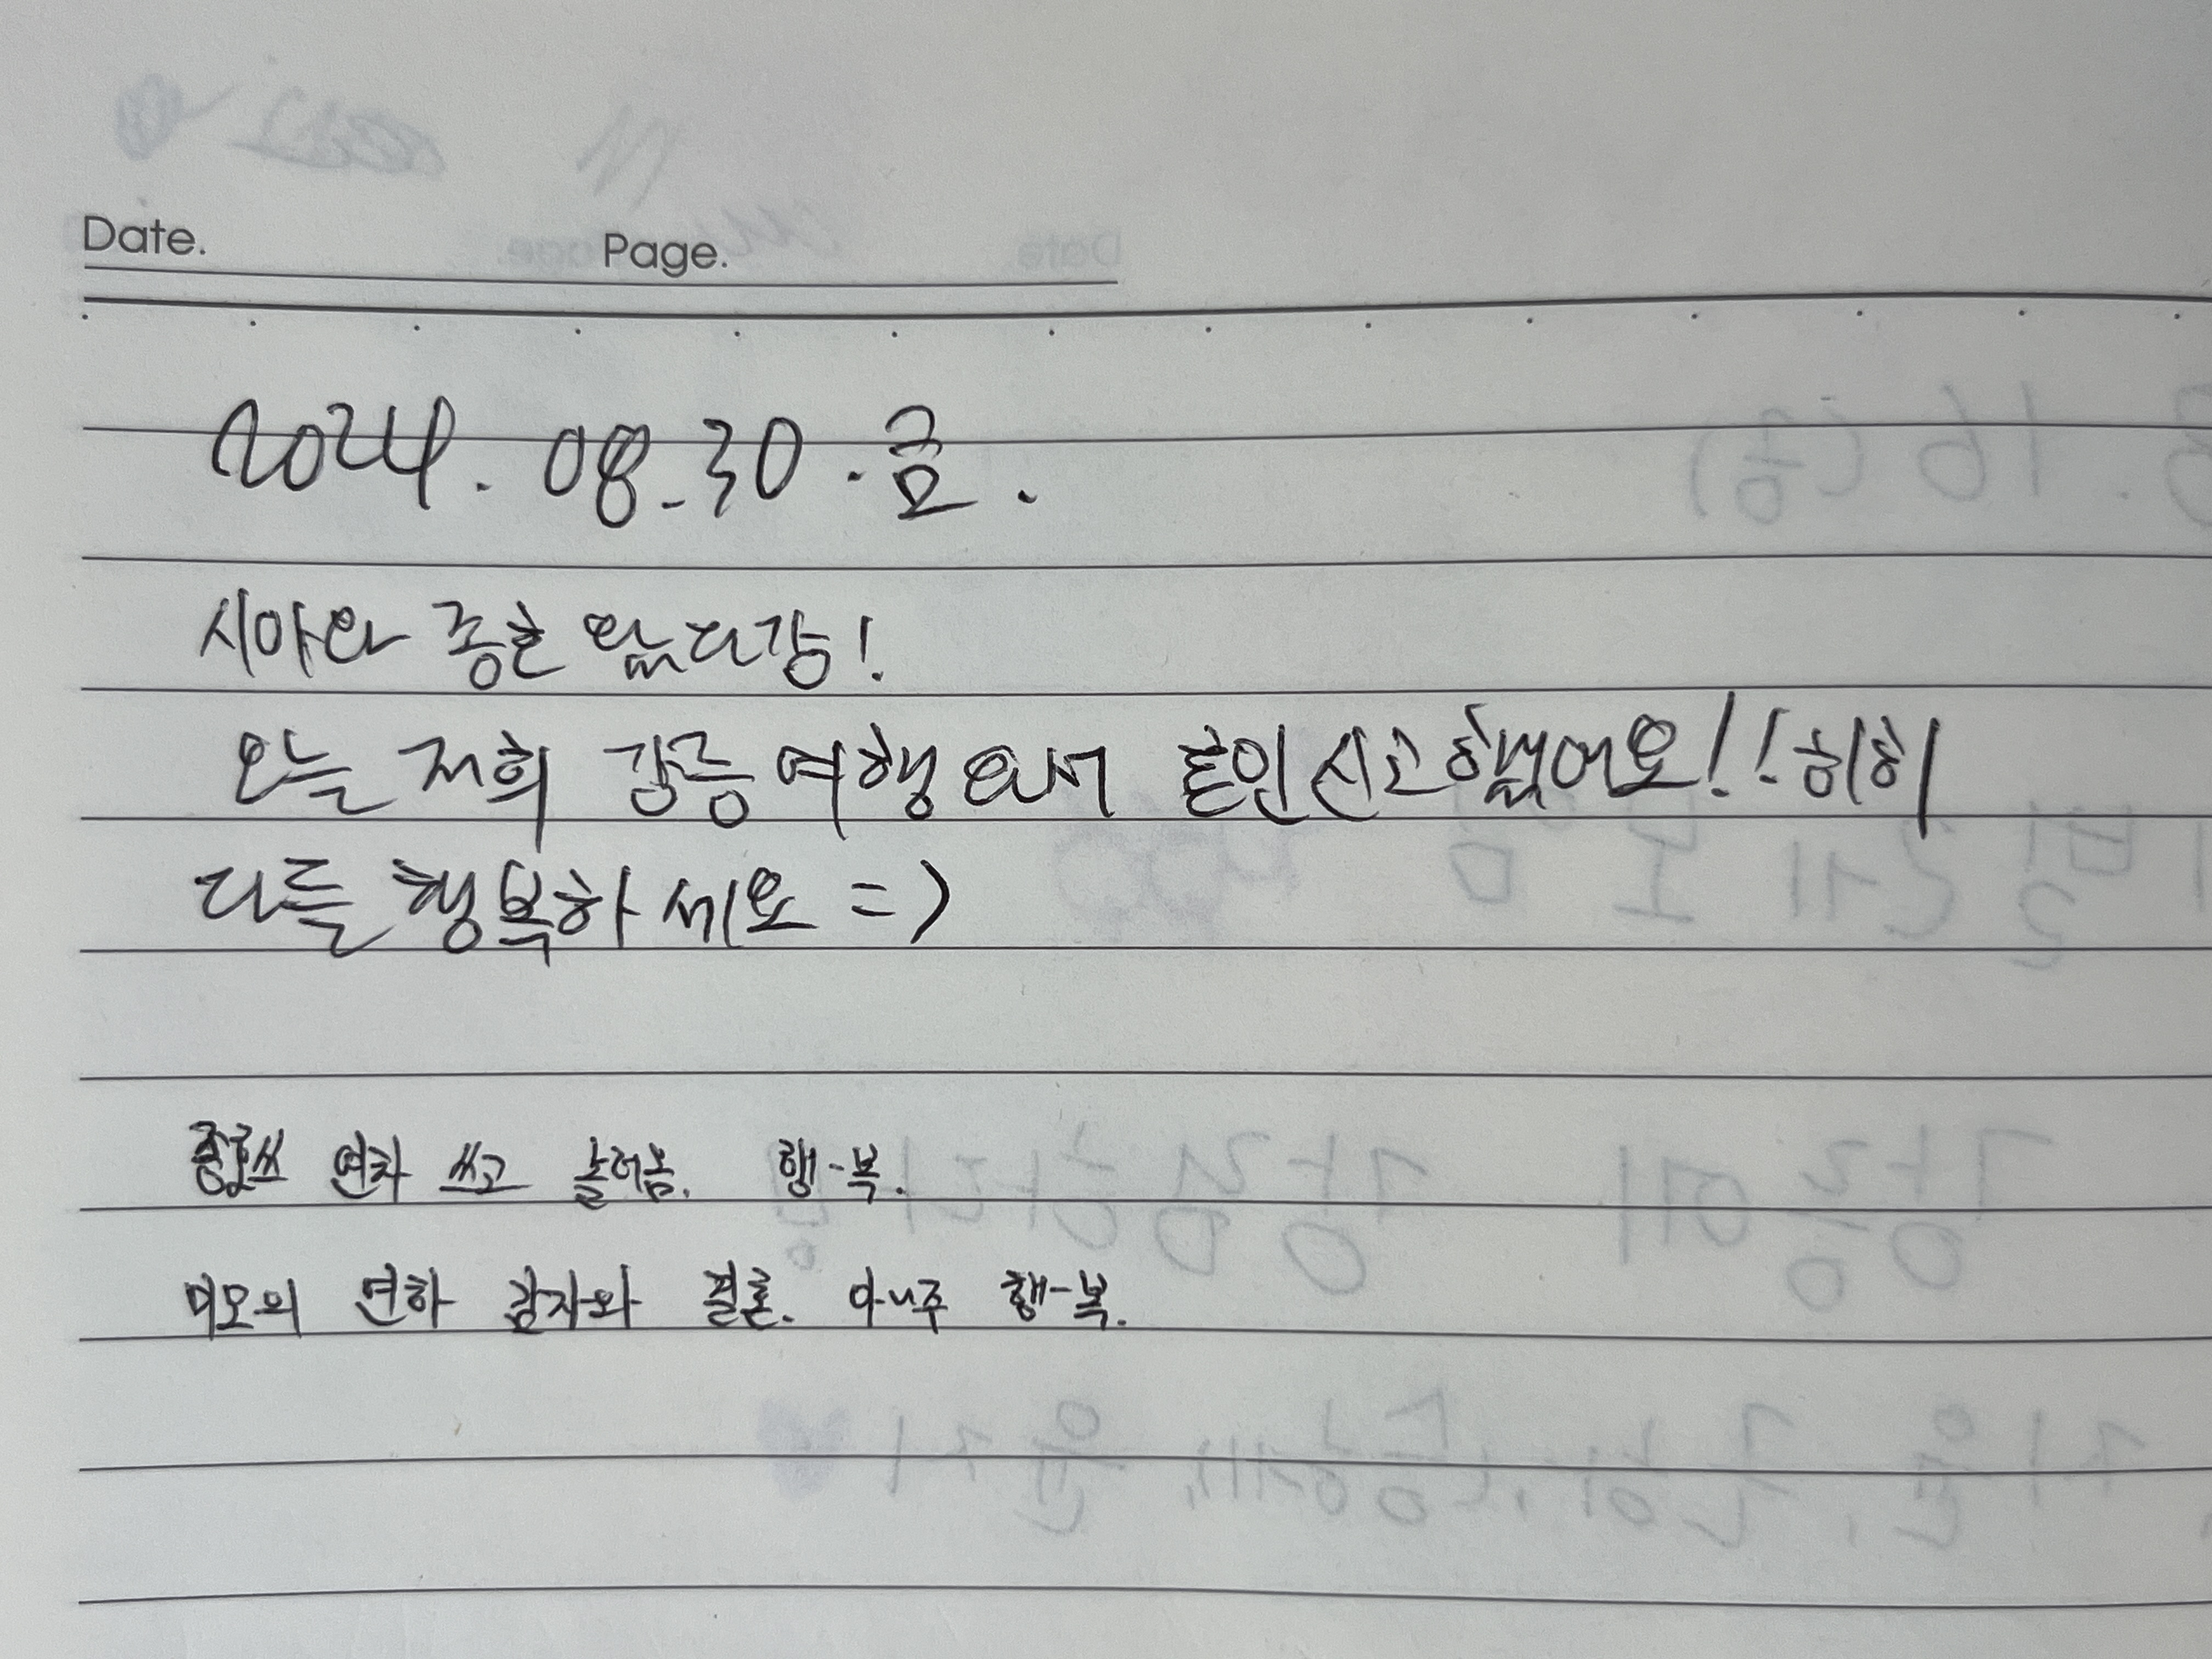 Date. Page.
2024. 08. 30. 금.
시아와 종훈 왔다감!
오늘 저희 강릉여행 와서 혼인신고했어요!! 히히
다들 행복하세요 =)
연차 쓰고 놀러옴. 행-복.
미모의 연하 감자와 결혼. 아니주 행-복.